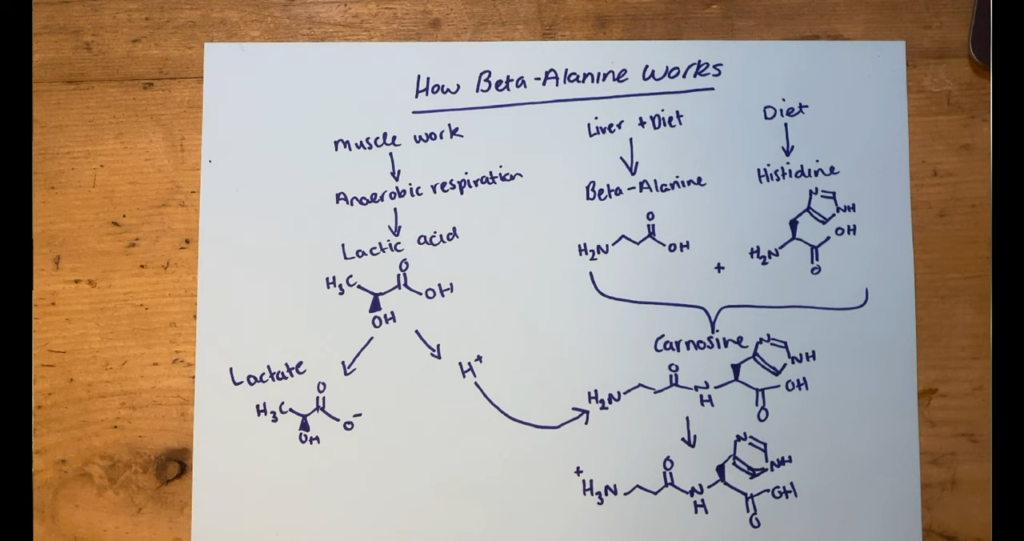 How Beta-Alanine Works
Muscle work
Anaerobic respiration
Lactic acid
H₃C
O
OH
OH
Lactate
H₃C
O
O⁻
OH
H⁺
Liver + Diet
Beta-Alanine
H₂N
O
OH
+
Diet
Histidine
N
NH
H₂N
OH
O
Carnosine
N
NH
H₂N
O
N
H
OH
O
N
NH
⁺H₃N
O
N
H
OH
O